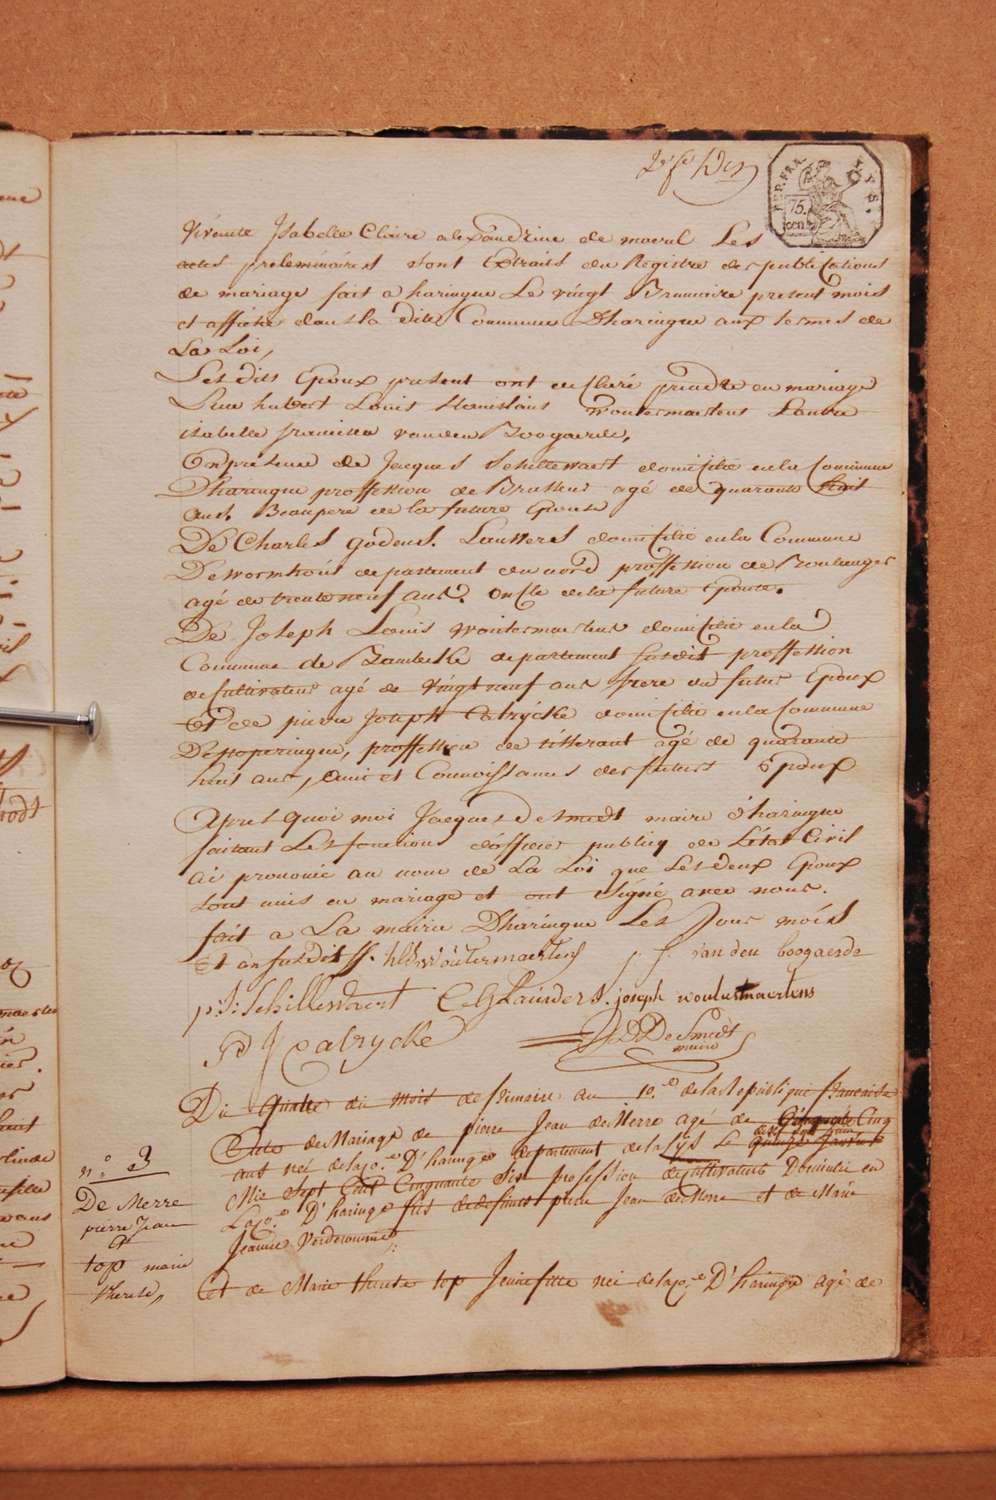 REP. FRA.
75.
cen.
vivente Isabelle Claire alexandrine de maeul Les
actes preleminaires sont Extraits du Registre des publications
de mariage fait a haringue Le vingt Brumaire present mois
et affiche dans la dite Commune Dharingue aux termes de
La Loi,
Les dits Epoux present ont declaré prendre en mariage
L'un hubert Louis Stanislaus Woutermaertens Lautre
isabelle francisca vanden Boogaerde,
En presence de Jacques Schillewaert domicilié en la Commune
Dharingue proffession de Brasseur agé de quarante huit
ans. Beaupere de la future Epouse
De Charles godens. Lauwers domicilié en la Commune
De wormhout departement du nord proffession de Boulanger
agé de trente neuf ans. oncle de la future Epouse.
De Joseph Louis woutermaertens domicilié en la
Commune de Bambecke departement susdit proffession
de cultivateur agé de vingt neuf ans frere du futur Epoux
Et de pierre Joseph Catrycke domicilié en la Commune
De poperingue, proffession de tisserant agé de quarante
huit ans, ami et Connoissances des futurs Epoux
Apres Quoi moi Jacques Desmedt maire d'haringue
faisant Les fonctions d'officier publiq de L'état Civil
ai prononcé au nom de La Loi que Les deux Epoux
sont unis en mariage et ont signé avec nous.
fait a La mairie Dharingue Les Jour mois
Et an susdit woutermaertens vanden boogaerde
p: J: Schillewaert C G Lauwers. joseph woutermaertens
P J Catrycke DeSmedt
maire
Du Quatre du mois de frimaire an 10.e de la Republique francaise
n.o 3
De Merre
pierre Jean
Et
top marie
therese,
Acte de Mariage de pierre Jean de Merre agé de Cinquante Cinq
ans né de la co.e D'haringe departement de la Lys le quinze Janvier
Mil Sept Cent Cinquante Six profession de cultivateur Domicilié en
La co.e D'haringe fils de defunts pierre Jean de Merre et de Marie
Jeanne
Et de Marie therese top Jeune fille née de la co.e D'haringe agé de